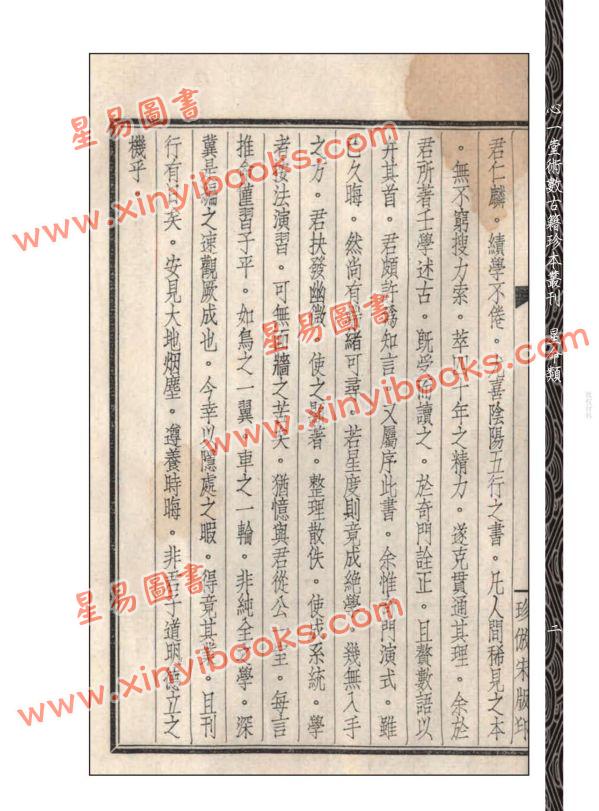 心一堂術數古籍珍本叢刊 星命類
二
珍倣宋版印
君仁麟。績學不倦。喜陰陽五行之書。凡人間稀見之本
。無不窮搜力索。萃四十年之精力。遂克貫通其理。余於
君所著壬學述古。既受而讀之。於奇門詮正。且贅數語以
弁其首。君頗許為知言。又屬序此書。余惟門演式。雖
已久晦。然尚有緒可尋。若星度則竟成絕學。幾無入手
之方。君抉發幽微。使之著。整理散佚。使成系統。學
者按法演習。可無面牆之苦矣。猶憶與君從公一室。每言
推命僅習子平。如鳥之一翼。車之一輪。非純全之學。深
冀是編之速觀厥成也。今幸以隱處之暇。得竟其業。且刊
行有日矣。安見大地烟塵。遵養時晦。非吾子道明德立之
機乎。
星易圖書
www.xinyibooks.com
星易圖書
www.xinyibooks.com
星易圖書
www.xinyibooks.com